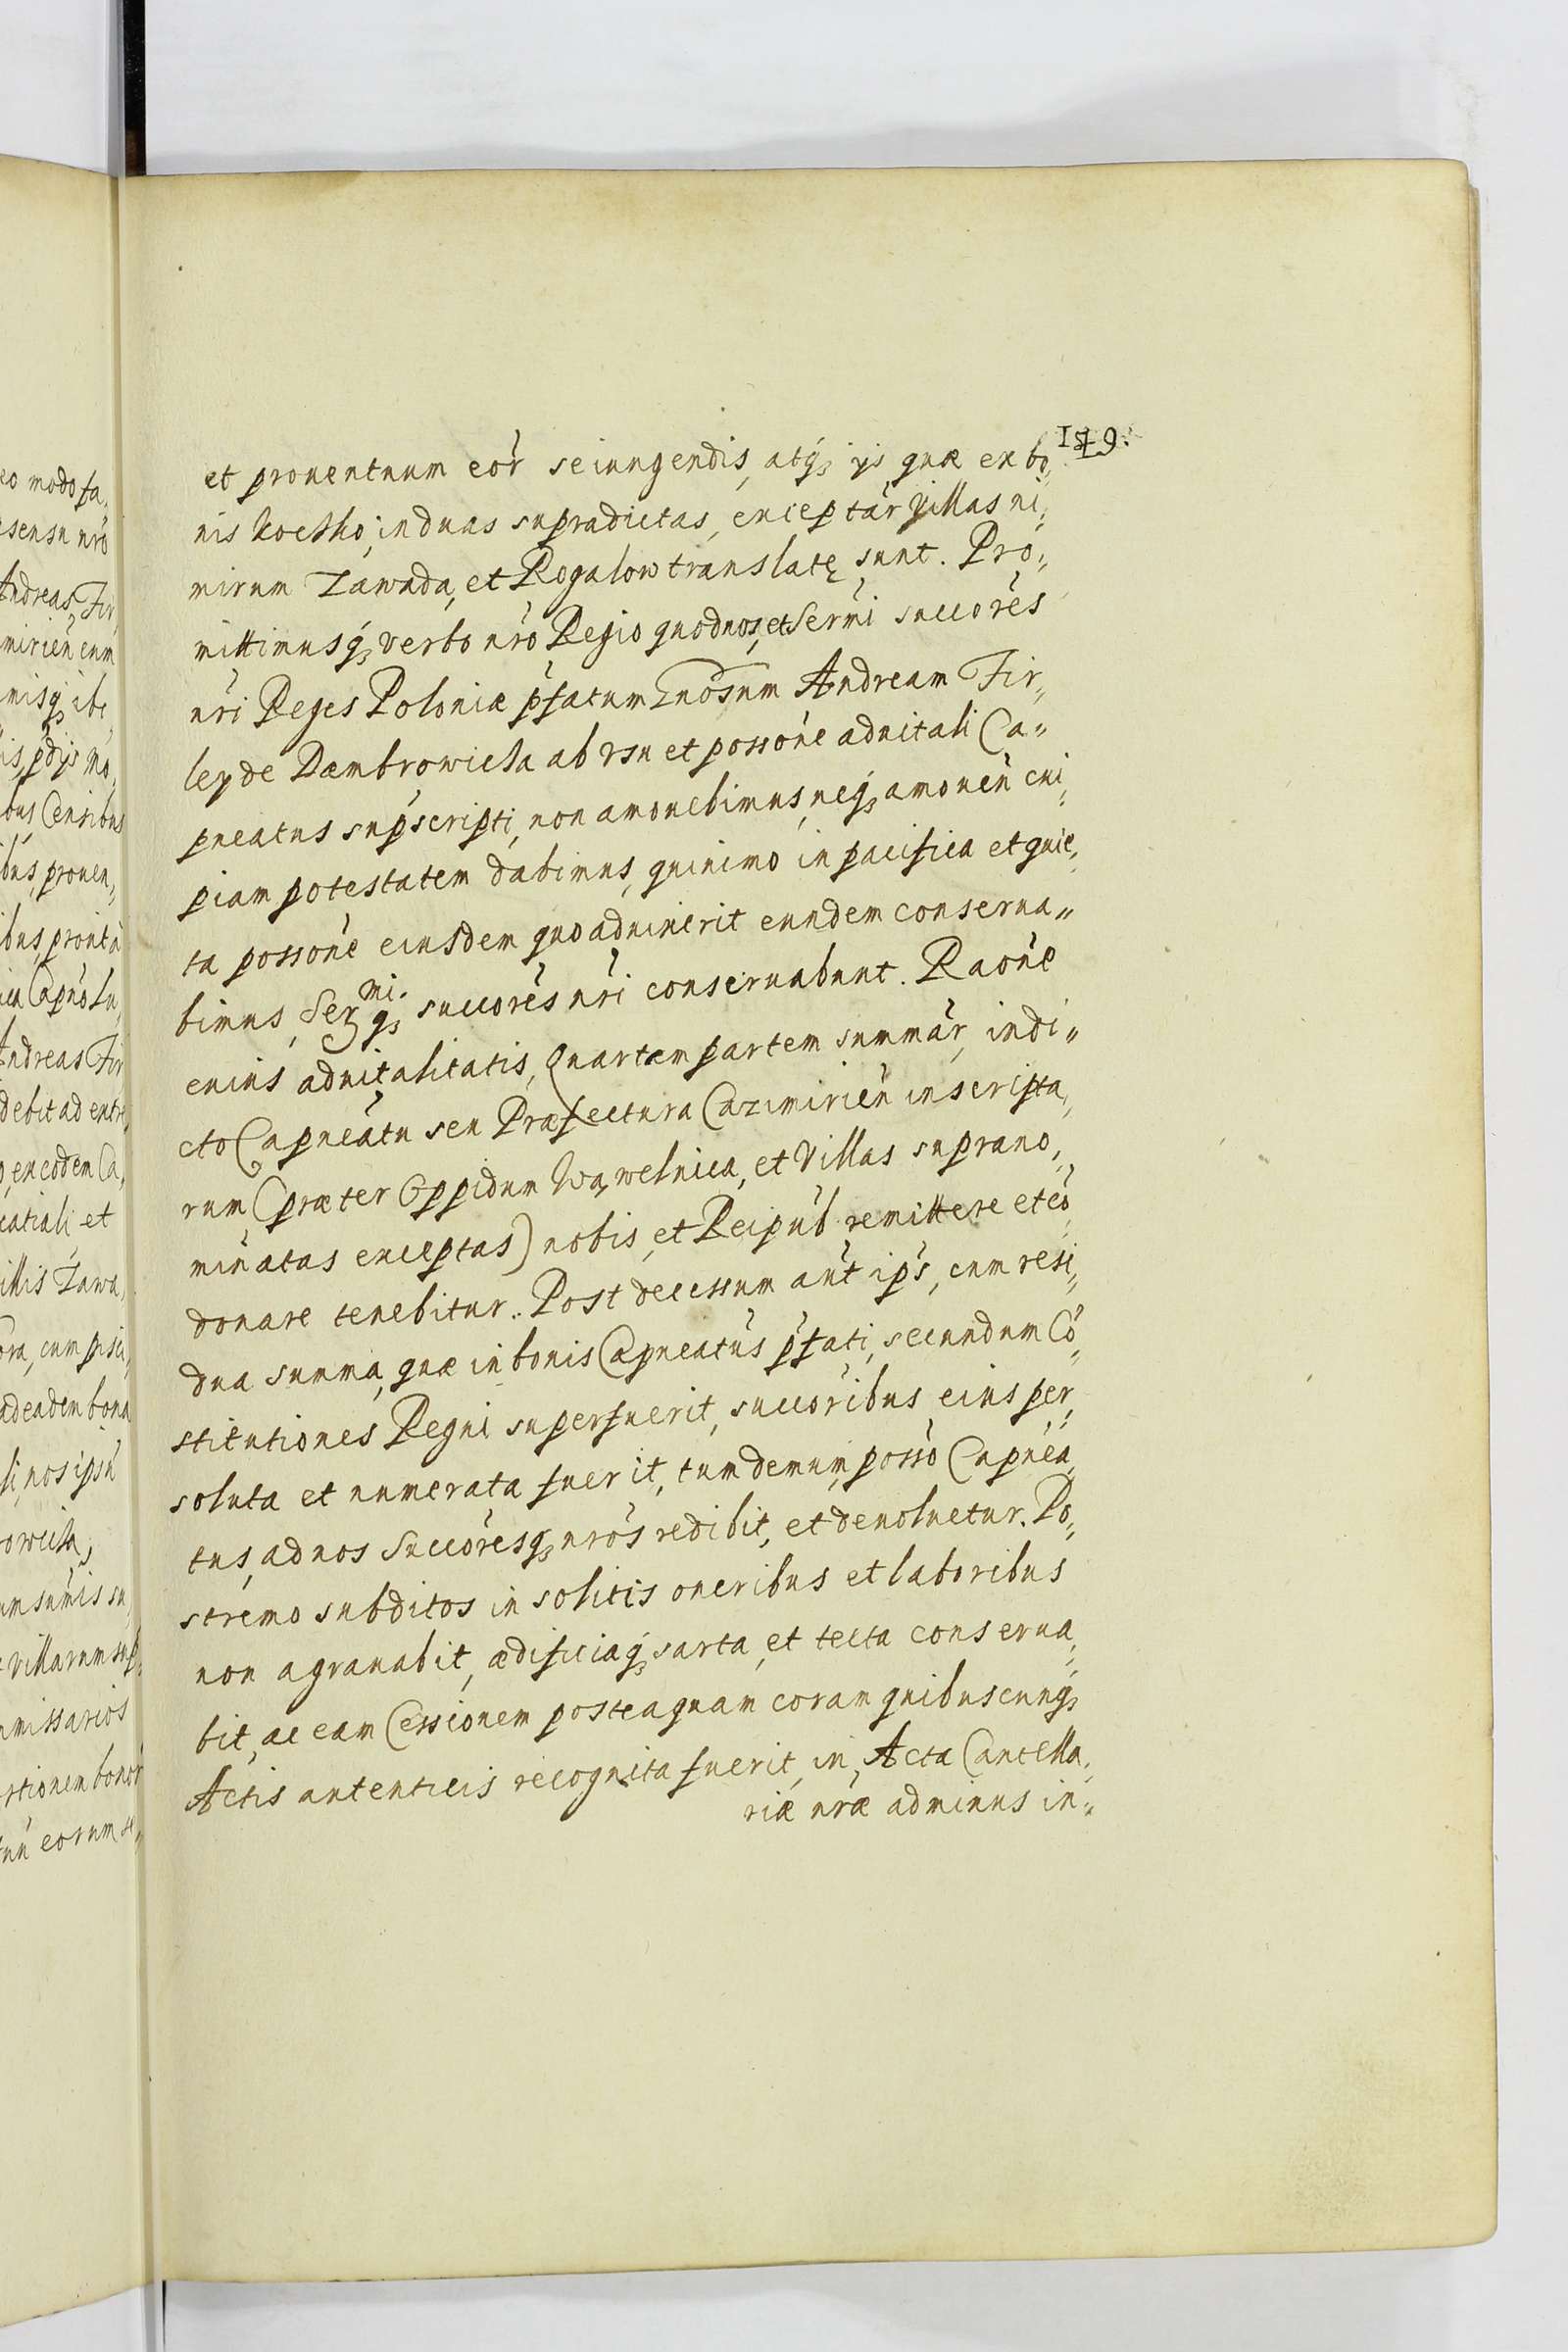 179.
et prouentuum eor̃ seiungendis, atq́ₓ ijs quæ ex bo„
nis koesko, in duas supradictas, exceptar̃ Villas ni„
mirum Zawada, et Rogalow translatę sunt. Pro„
mittimusq́ₓ verbo nr̃o Regio quod nos, et Serm̃i succor̃es
nr̃i Reges Poloniæ pf̃atum Gnosum Andream Fir„
ley de Dambrowicza ab vsu et possoñe aduitali Ca„
pneatus sup̃scripti, non amouebimus, neq́ₓ amoueñ cui„
piam potestatem dabimus, quinimo in pacifica et quie„
ta possoñe eiusdem quoad uixerit eundem conserua„
bimus, Ser mi. qₓ succor̃es nr̃i conseruabunt. Raoñe
cuius aduitalitatis, Quartam partem summar̃, in di„
cto Capneãtu seu Præfectura Cazimirień inscripta„
rum (præter Oppidum Wąwelnica, et Villas suprano„
miñatas exceptas) nobis, et Reipub̃ remittere et cõ„
donare tenebitur. Post decessum aut̃ ip̃s, cum resi„
dua summa, quæ in bonis Capneatus̃ pf̃ati, secundum Cõ„
stitutiones Regni superfuerit, succor̃ibus eius per„
soluta et numerata fuerit, tum demum posso̊ Capnea̋„
tus, ad nos Succor̃esqₓ nr̃os redibit, et deuoluetur. Po„
stremo subditos in solitis oneribus et laboribus
non agrauabit, ædificiaq́ₓ sarta, et tecta conserua„
bit, ac eam Cessionem posteaquam coram quibuscunqₓ
Actis autenticis recognita fuerit, in Acta Cancella„
riæ nr̃æ ad minus in„